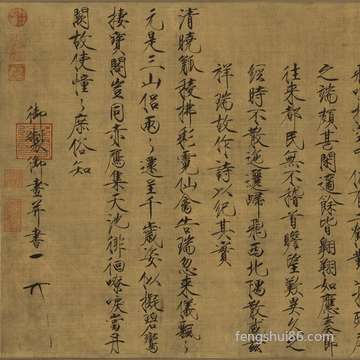 之端頗甚閒適餘皆翱翔如應奏節
往來都民無不稽首瞻望歎異久之
經時不散迤邐歸飛西北隅散感茲
祥瑞故作詩以紀其實
清曉觚稜拂彩霓仙禽告瑞忽來儀飄〻
元是三山侶兩〻還呈千歲姿似擬碧鸞
棲寶閣豈同赤鴈集天池徘徊嘹唳當丹
闕故使憧〻庶俗知
御製御畫并書
fengshui86.com